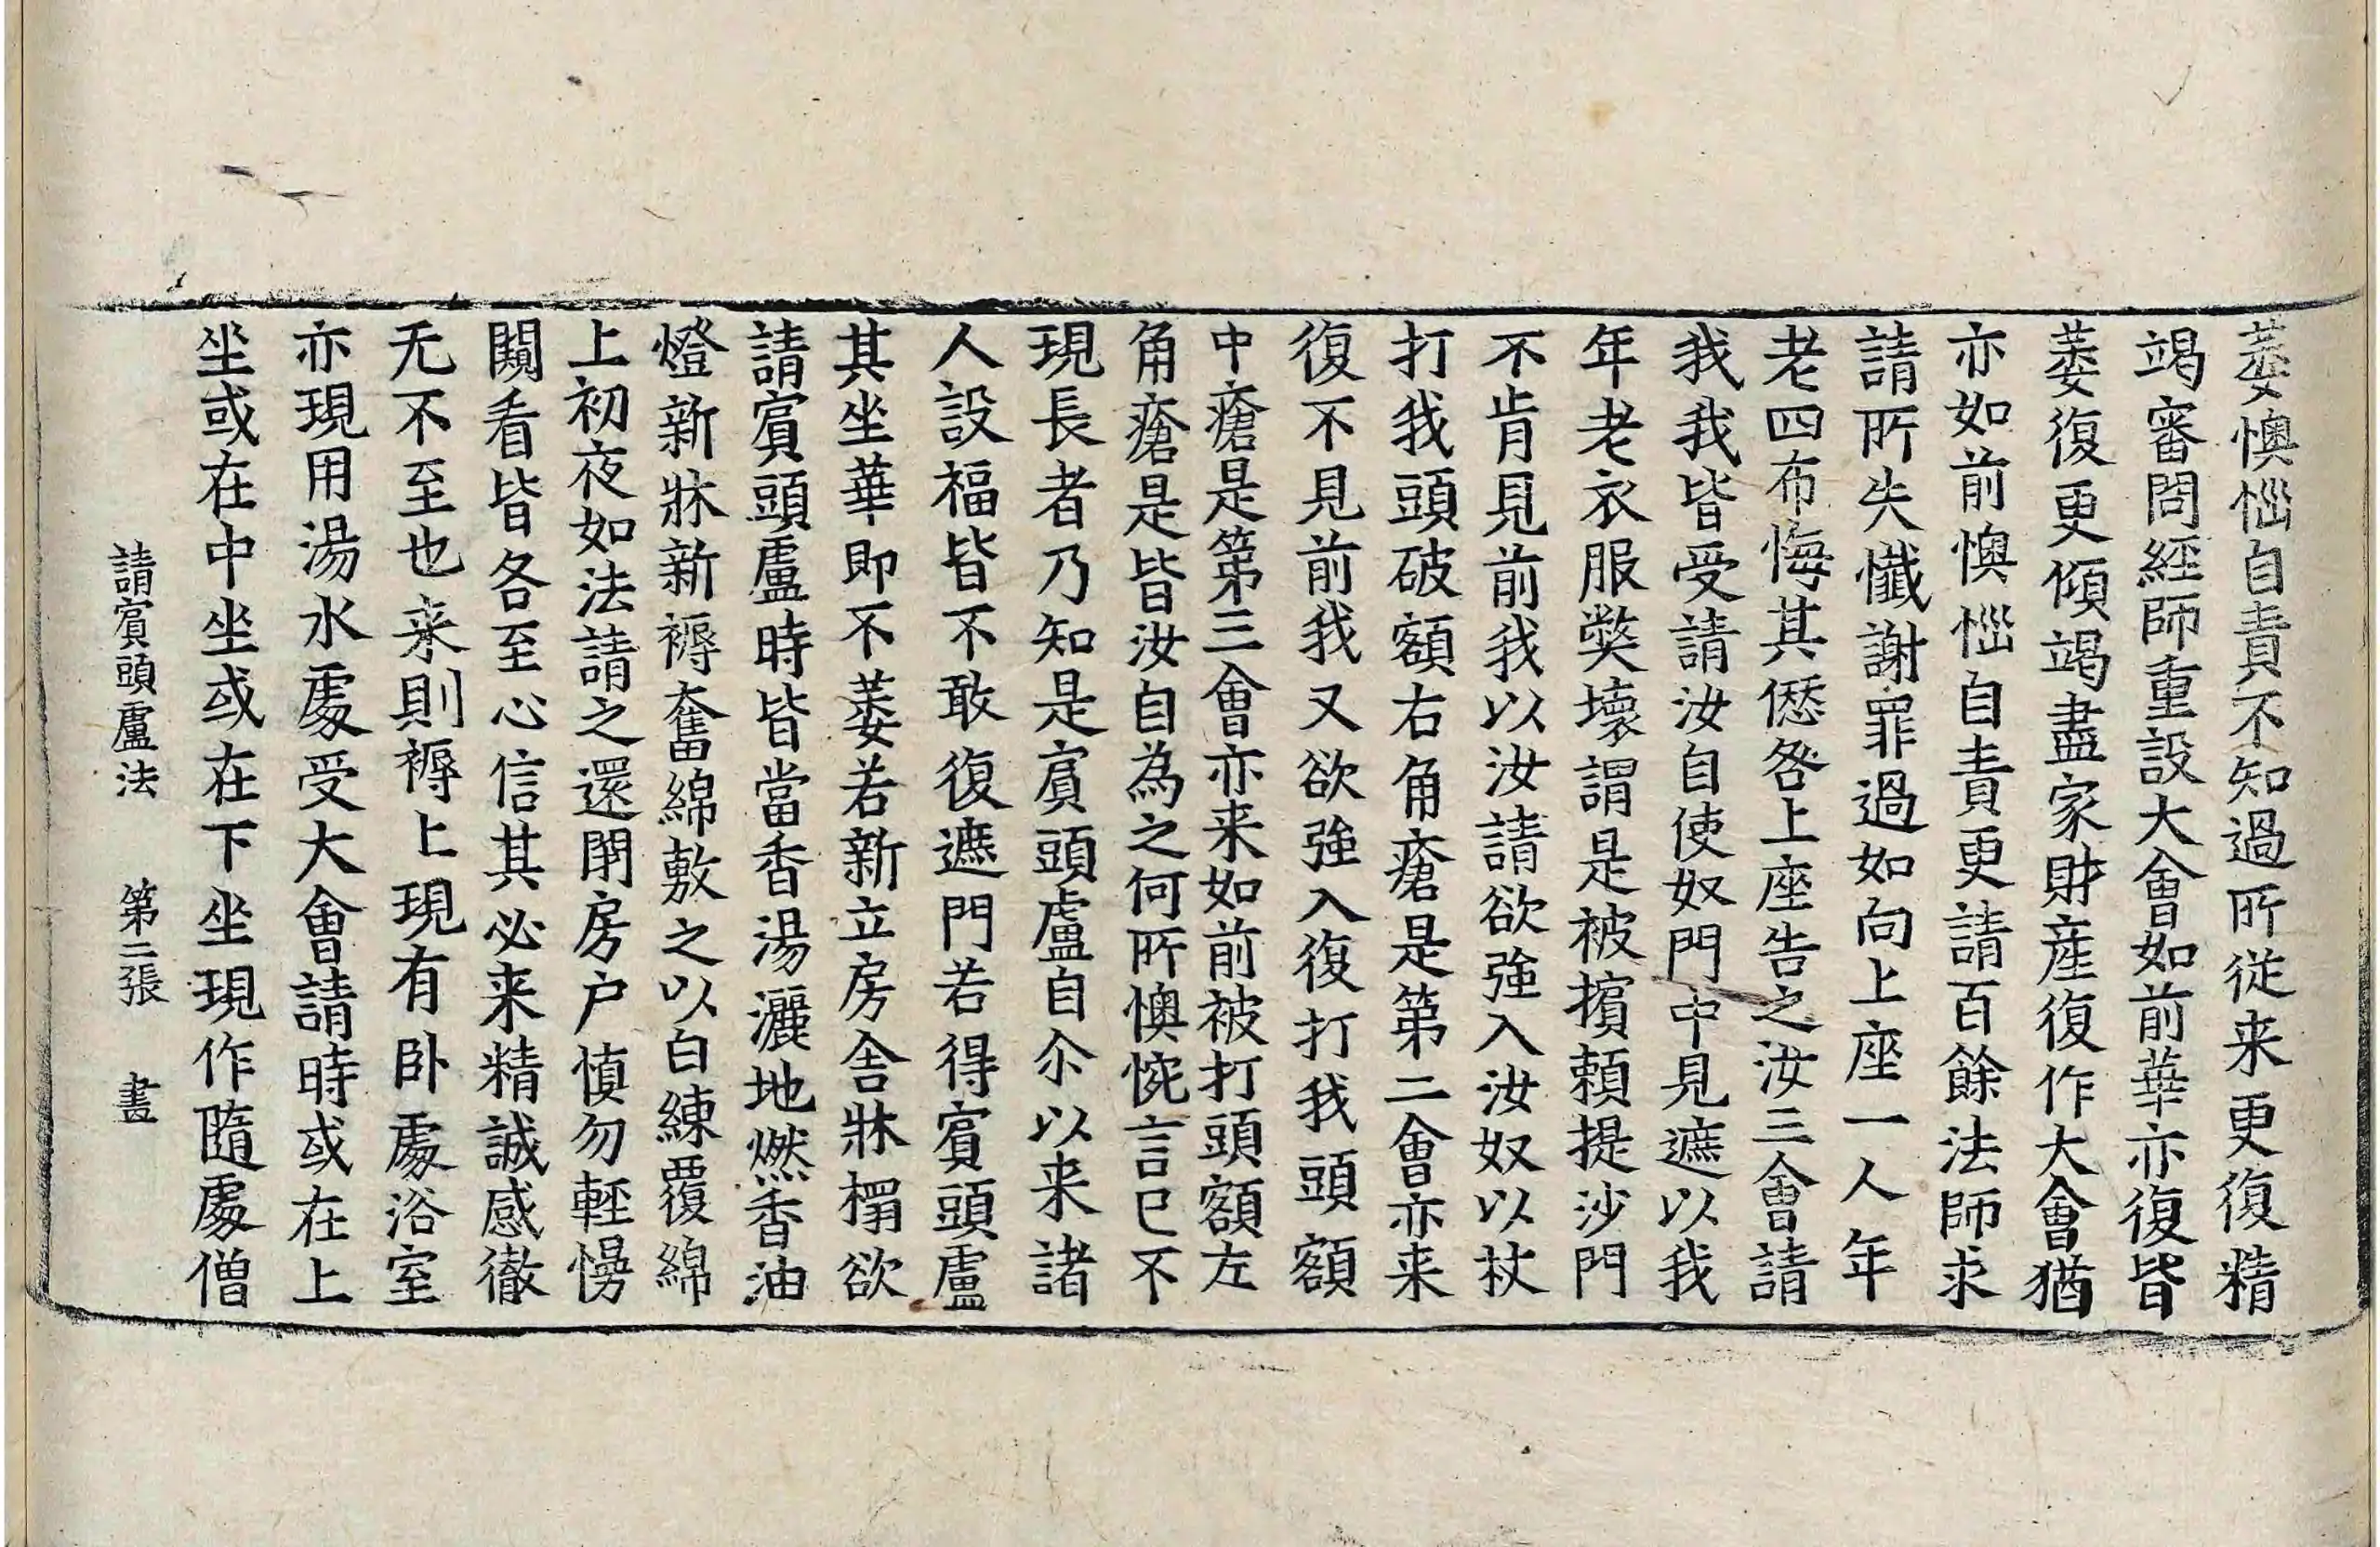 萎懊惱自責不知過所從来更復精
竭審問經師重設大會如前華亦復皆
萎復更傾竭盡家財産復作大會猶
亦如前懊惱自責更請百餘法師求
請所失懺謝罪過如向上座一人年
老四布悔其愆咎上座告之汝三會請
我我皆受請汝自使奴門中見遮以我
年老衣服獘壞謂是被擯頼提沙門
不肯見前我以汝請欲強入汝奴以杖
打我頭破額右角瘡是第二會亦来
復不見前我又欲強入復打我頭額
中瘡是第三會亦来如前被打頭額左
角瘡是皆汝自為之何所懊惋言已不
現長者乃知是賔頭盧自尒以来諸
人設福皆不敢復遮門若得賔頭盧
其坐華即不萎若新立房舎牀榻欲
請賔頭盧時皆當香湯灑地燃香油
燈新牀新褥奮綿敷之以白練覆綿
上初夜如法請之還閇房户慎勿輕慢
闚看皆各至心信其必来精誠感徹
无不至也来則褥上現有卧處浴室
亦現用湯水處受大會請時或在上
坐或在中坐或在下坐現作隨處僧
請賔頭盧法　第二張　晝